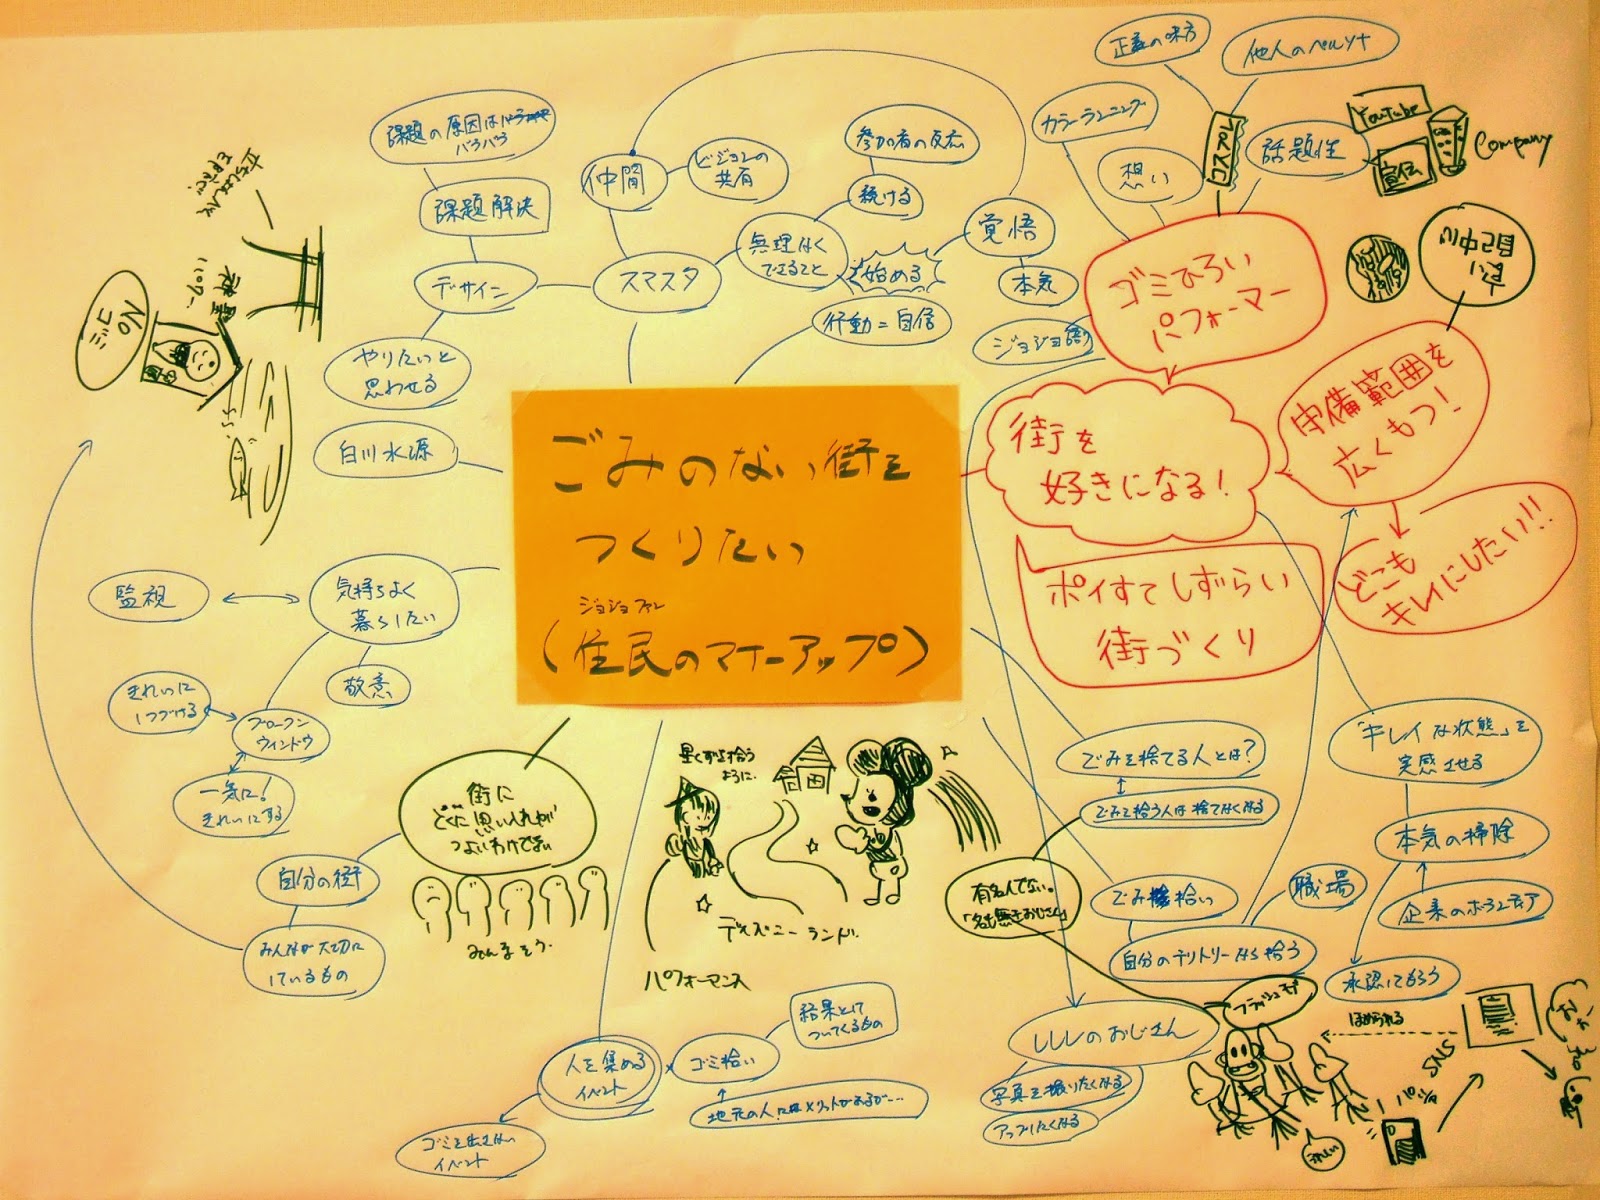 ごみのない街を
つくりたい
ジョジョファン
(住民のマナーアップ)
正義の味方
他人のペルソナ
カラーランニング
想い
話題性
Youtube
宣伝
Company
ゴミひろい
パフォーマー
ジョジョ語り
街を
好きになる!
守備範囲を
広くもつ!
どこも
キレイにしたい!!
ポイすてしずらい
街づくり
課題の原因は
バラバラ
課題解決
デザイン
やりたいと
思わせる
白川水源
仲間
ビジョンの
共有
スマスタ
無理なく
できること
参加者の反応
続ける
始める
行動=自信
覚悟
本気
Noゴミ
監視
気持ちよく
暮らしたい
敬意
きれいに
しつづける
ブロークン
ウィンドウ
一気に!
きれいにする
自分の街
みんなが大切に
しているもの
街に
どくに思い入れが
つよいわけでない
みんなそう。
星くずを拾う
ように
ディズニーランド
パフォーマンス
人を集める
イベント
ゴミを出さない
イベント
ゴミ拾い
結果として
ついてくるもの
ごみを捨てる人とは?
ごみを拾う人は捨てなくなる
有名人でない。
「名も無きおじさん」
ごみ拾い
職場
自分のテリトリーなら拾う
「キレイな状態」を
実感させる
本気の掃除
企業のボランティア
承認してもらう
レレレのおじさん
写真を撮りたくなる
アップしたくなる
フラッシュモブ
ほめられる
SNS
パシャ